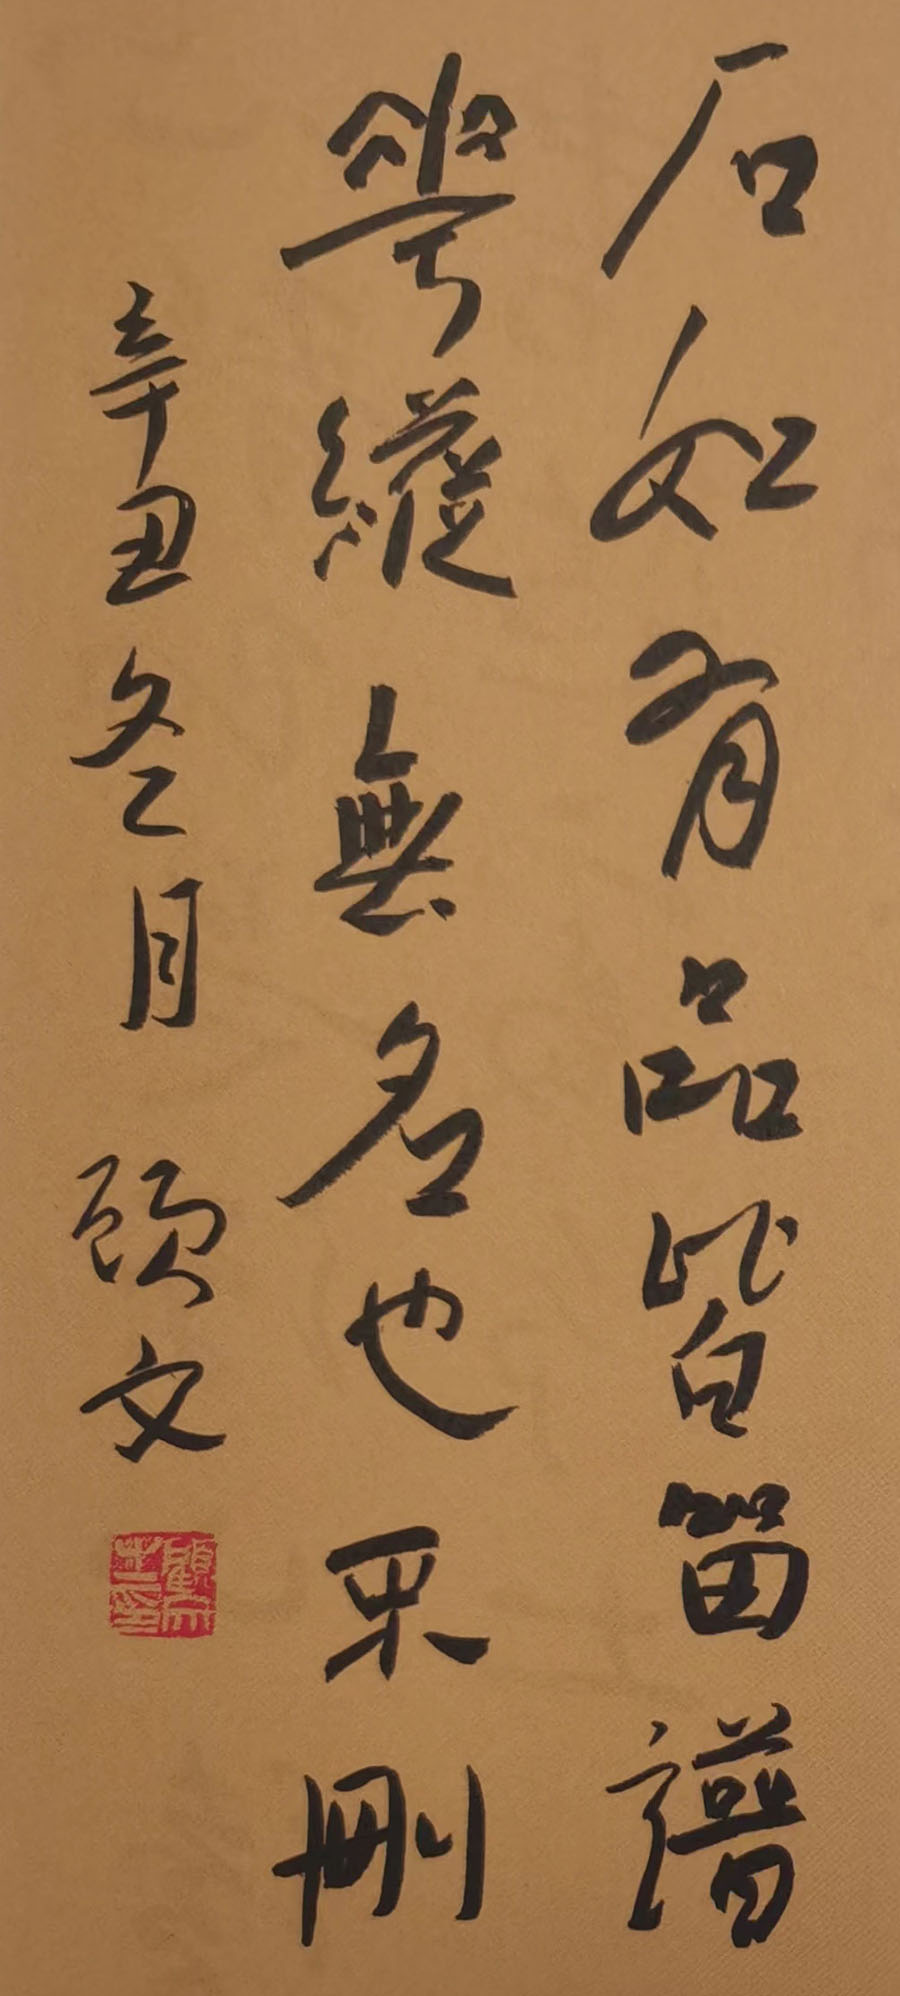 石如有品皆留譜
華縱無名也不刪
辛丑冬月 顾文